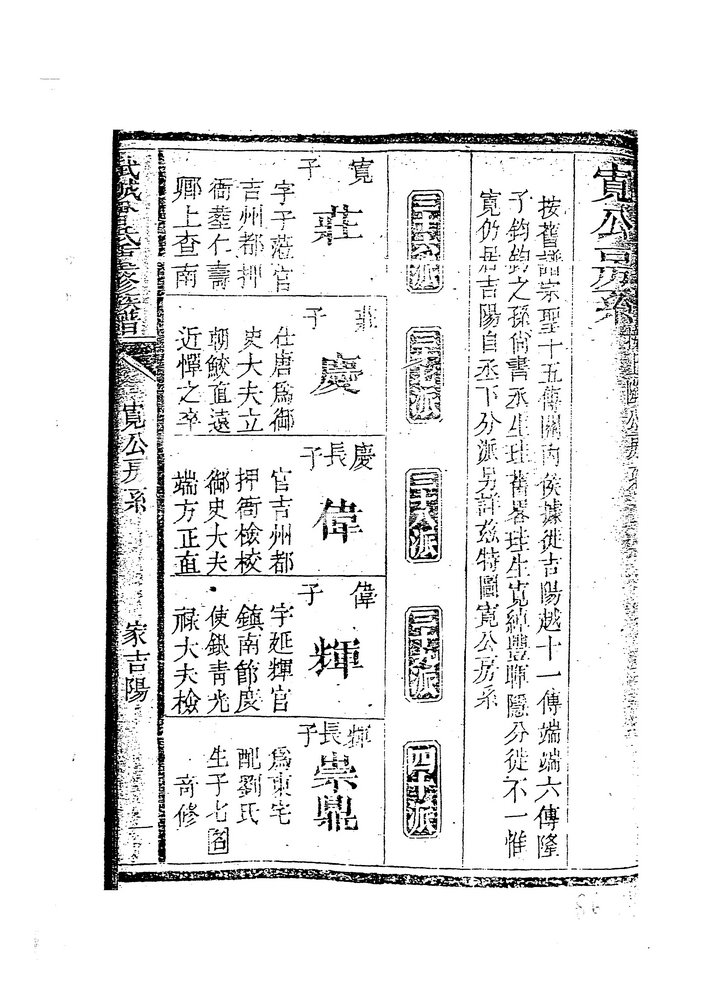 寬公房系
按舊譜宗聖十五傳關內侯據徙吉陽越十一傳端端六傳隆
子鈞鈞之孫尚書丞生珪舊畧珪生寬綽豐暉隱分徙不一惟
寬仍居吉陽自丞下分派另詳茲特圖寬公房系
派
派
派
派
派
寬子
莊
字子蒞官
吉州都押
衙葬仁壽
鄉上查南
莊子
慶
仕唐為御
史大夫立
朝鯁直遠
近憚之卒
慶長子
偉
官吉州都
押衙檢校
御史大夫
端方正直
偉子
輝
字延輝官
鎮南節度
使銀青光
祿大夫檢
輝長子
崇鼎
為東宅
配劉氏
生子七
奇修
武城曾氏重修族譜
寬公房系
家吉陽